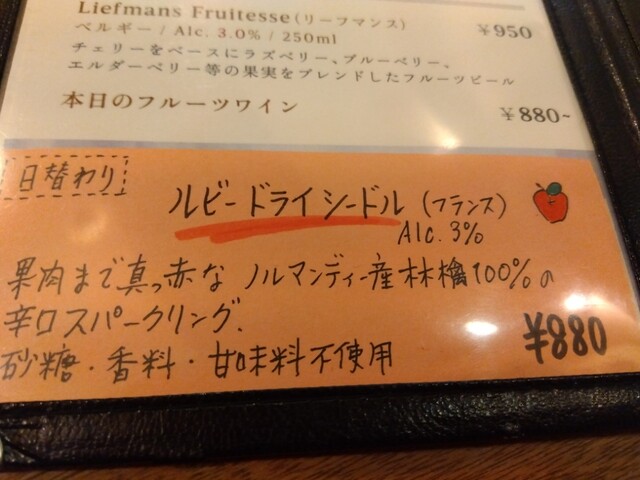 Liefmans Fruitesse（リーフマンス）
ベルギー / Alc. 3.0% / 250ml ¥950
チェリーをベースにラズベリー、ブルーベリー、
エルダーベリー等の果実をブレンドしたフルーツビール
本日のフルーツワイン ¥880~
日替わり
ルビードライシードル（フランス）
Alc. 3%
果肉まで真っ赤な ノルマンディー産林檎100%の
辛口スパークリング、
砂糖・香料・甘味料不使用 ¥880